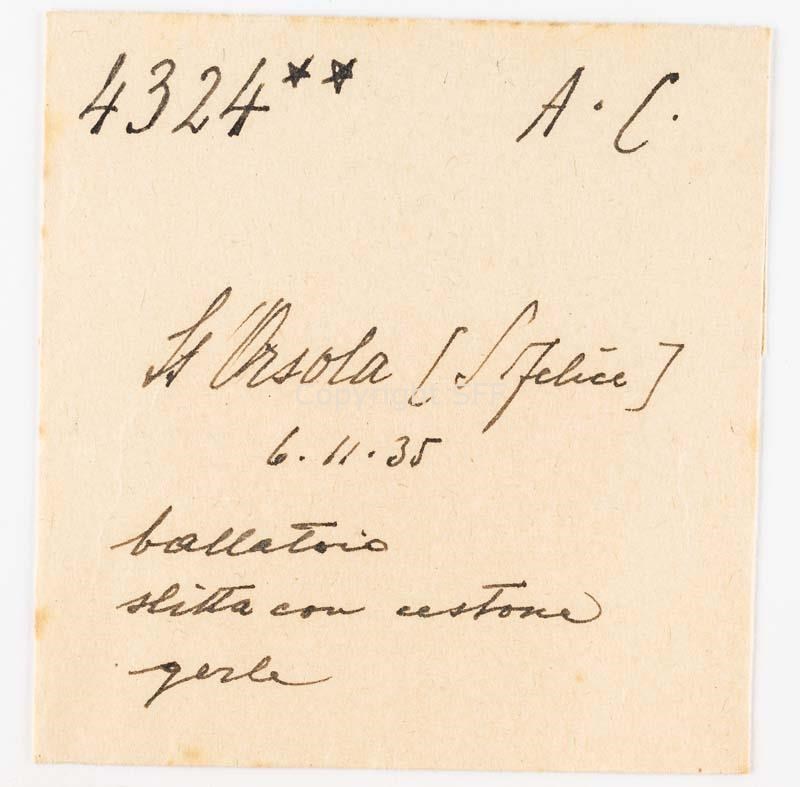 4324** A. C.
St Orsola [S. Felice]
6.11.35
ballatoio
slitta con cestone
gerle